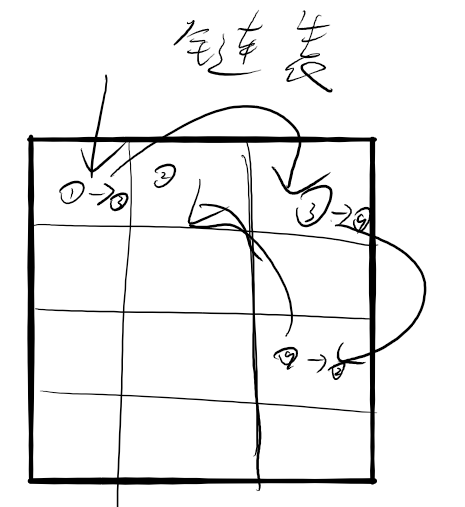 链表
①→③ ② ③→⑨
⑨→②